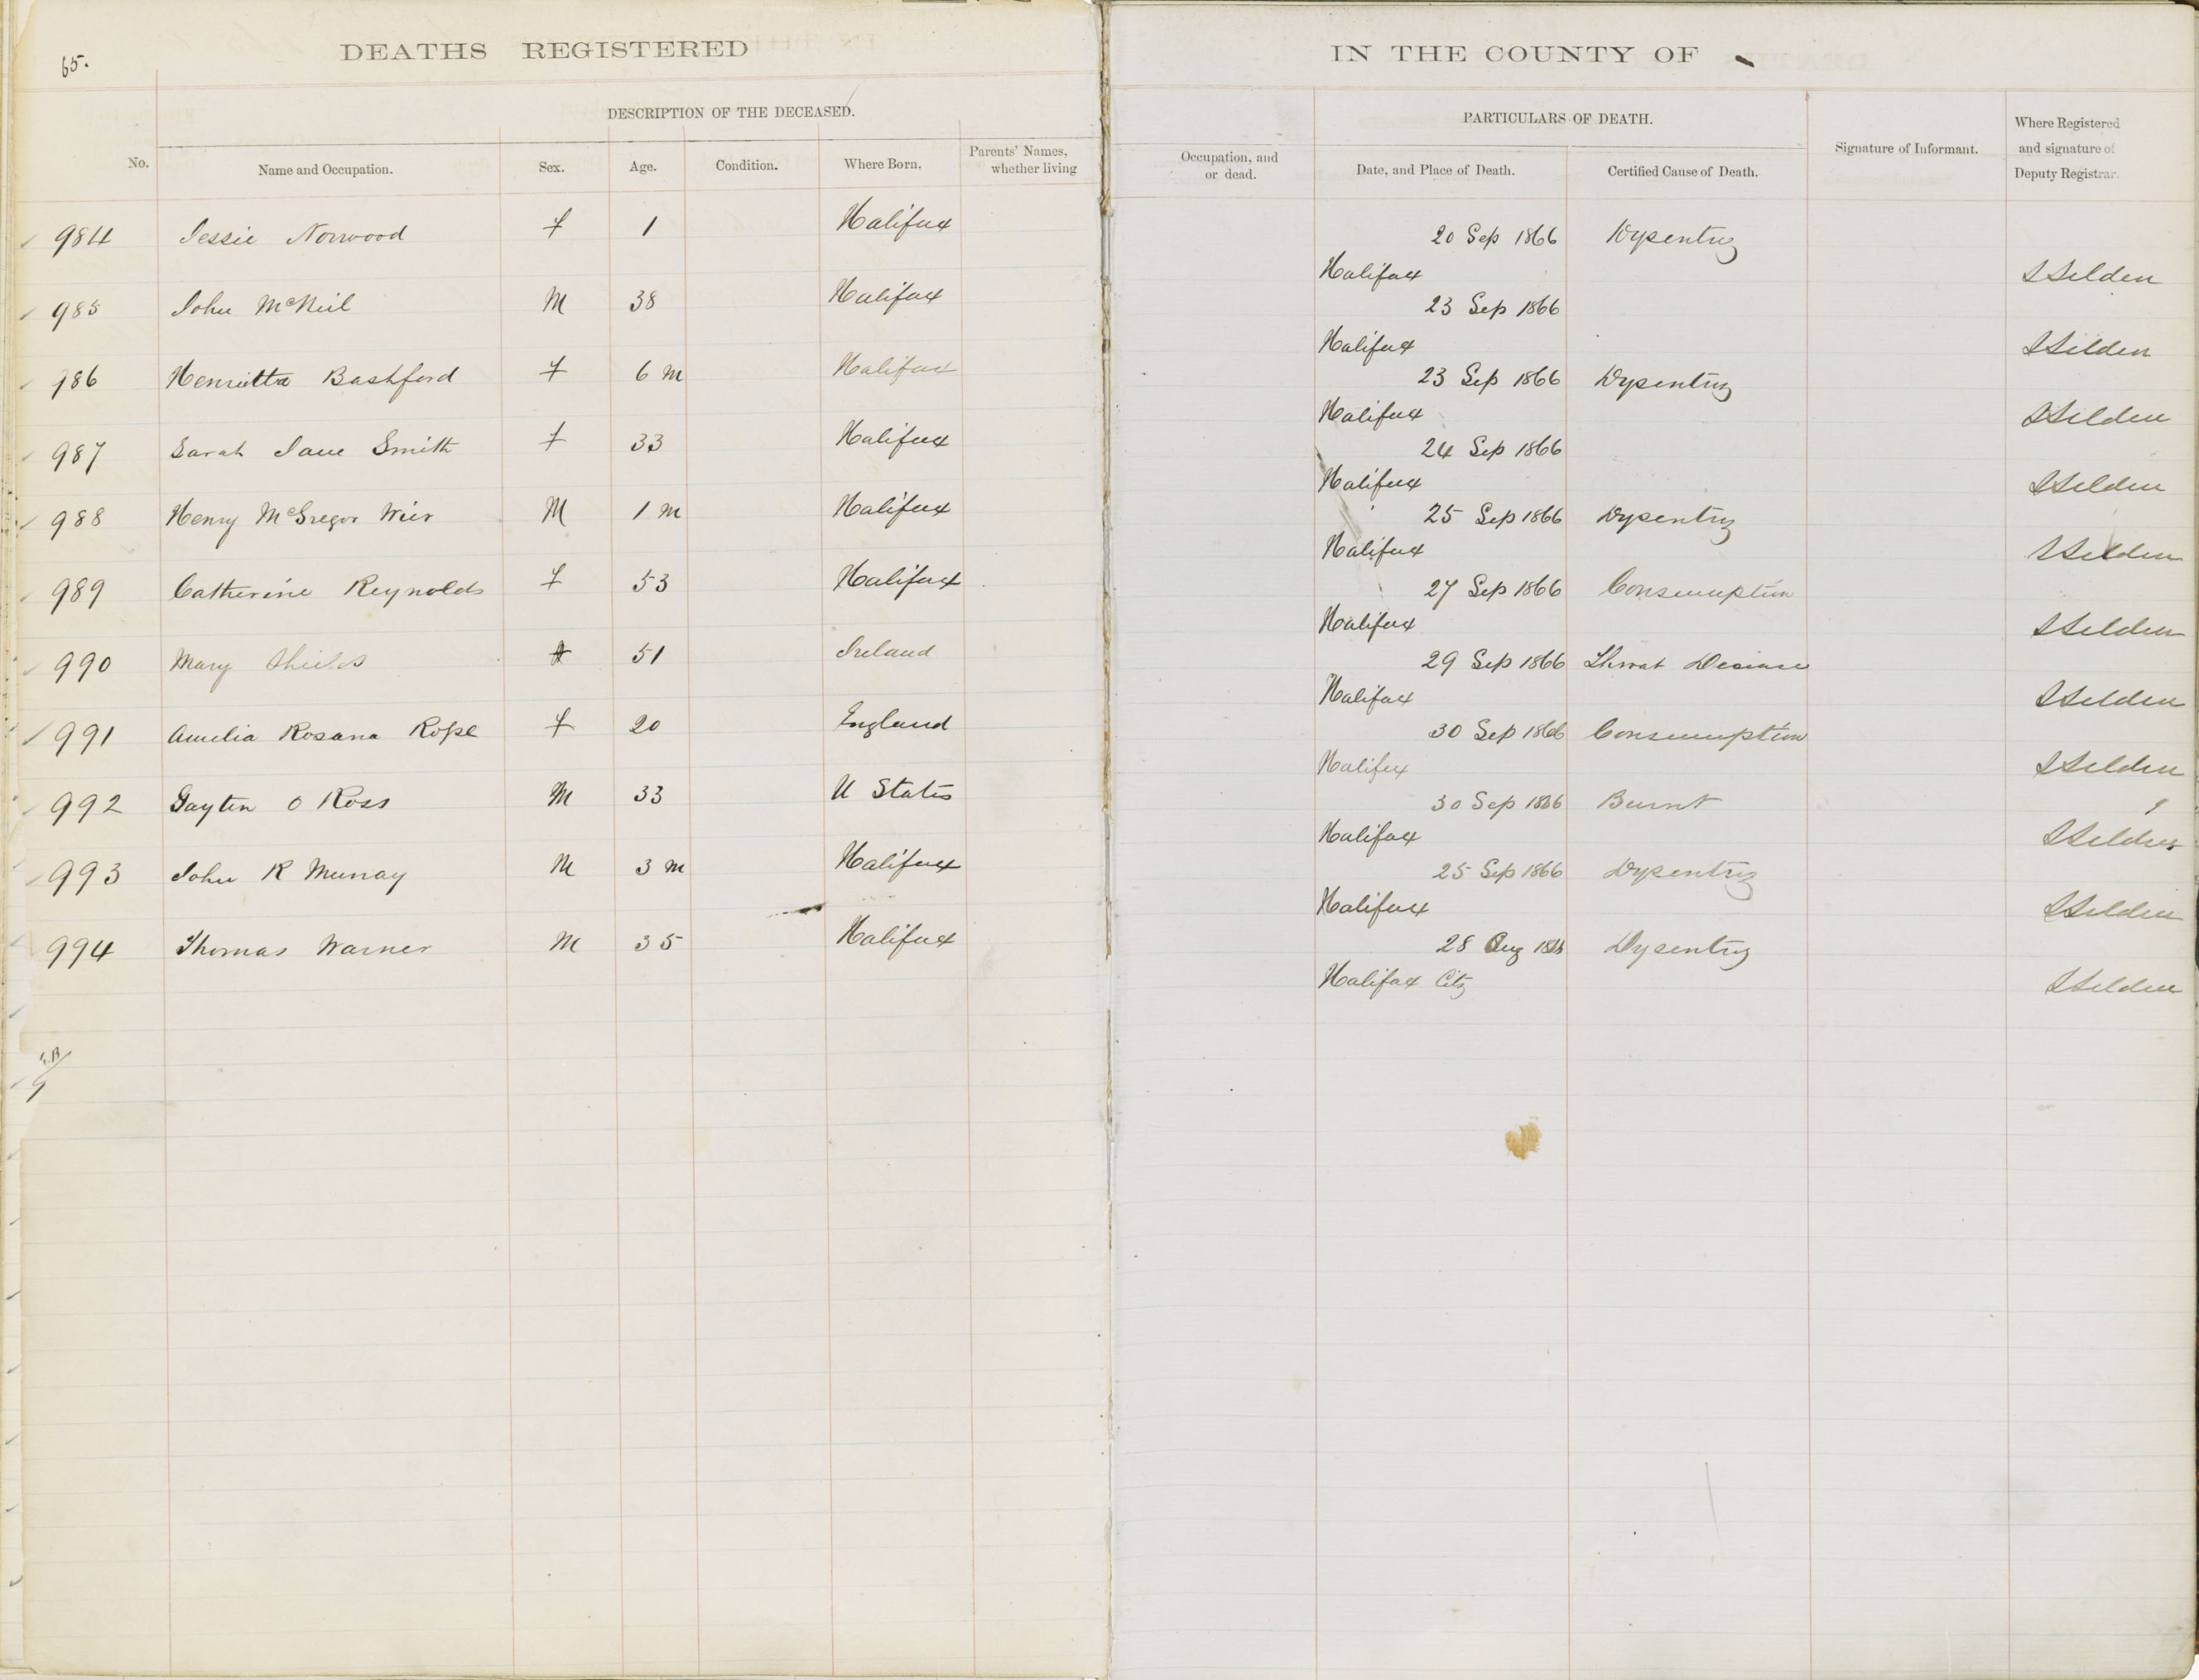 65.
DEATHS REGISTERED IN THE COUNTY OF
DESCRIPTION OF THE DECEASED. PARTICULARS OF DEATH.
No. Name and Occupation. Sex. Age. Condition. Where Born. Parents' Names, whether living Occupation, and or dead. Date, and Place of Death. Certified Cause of Death. Signature of Informant. Where Registered and signature of Deputy Registrar.
984 Jessie Norwood f 1 Halifax 20 Sep 1866 Dysentry
Halifax SSelden
985 John McNeil M 38 Halifax 23 Sep 1866
Halifax SSelden
986 Henrietta Bashford f 6 m Halifax 23 Sep 1866 Dysentry
Halifax SSelden
987 Sarah Jane Smith f 33 Halifax 24 Sep 1866
Halifax SSelden
988 Henry McGregor Wier M 1 m Halifax 25 Sep 1866 Dysentry
Halifax SSelden
989 Catherine Reynolds f 53 Halifax 27 Sep 1866 Consumption
Halifax SSelden
990 Mary Shields f 51 Ireland 29 Sep 1866 Throat Desiase
Halifax SSelden
991 Amelia Rosana Rope f 20 England 30 Sep 1866 Consumption
Halifax SSelden
992 Gayten O Ross M 33 U States 30 Sep 1866 Burnt
Halifax SSelden
993 John R Murray M 3 m Halifax 25 Sep 1866 Dysentry
Halifax SSelden
994 Thomas Warner M 35 Halifax 28 Aug Dysentry
Halifax City SSelden